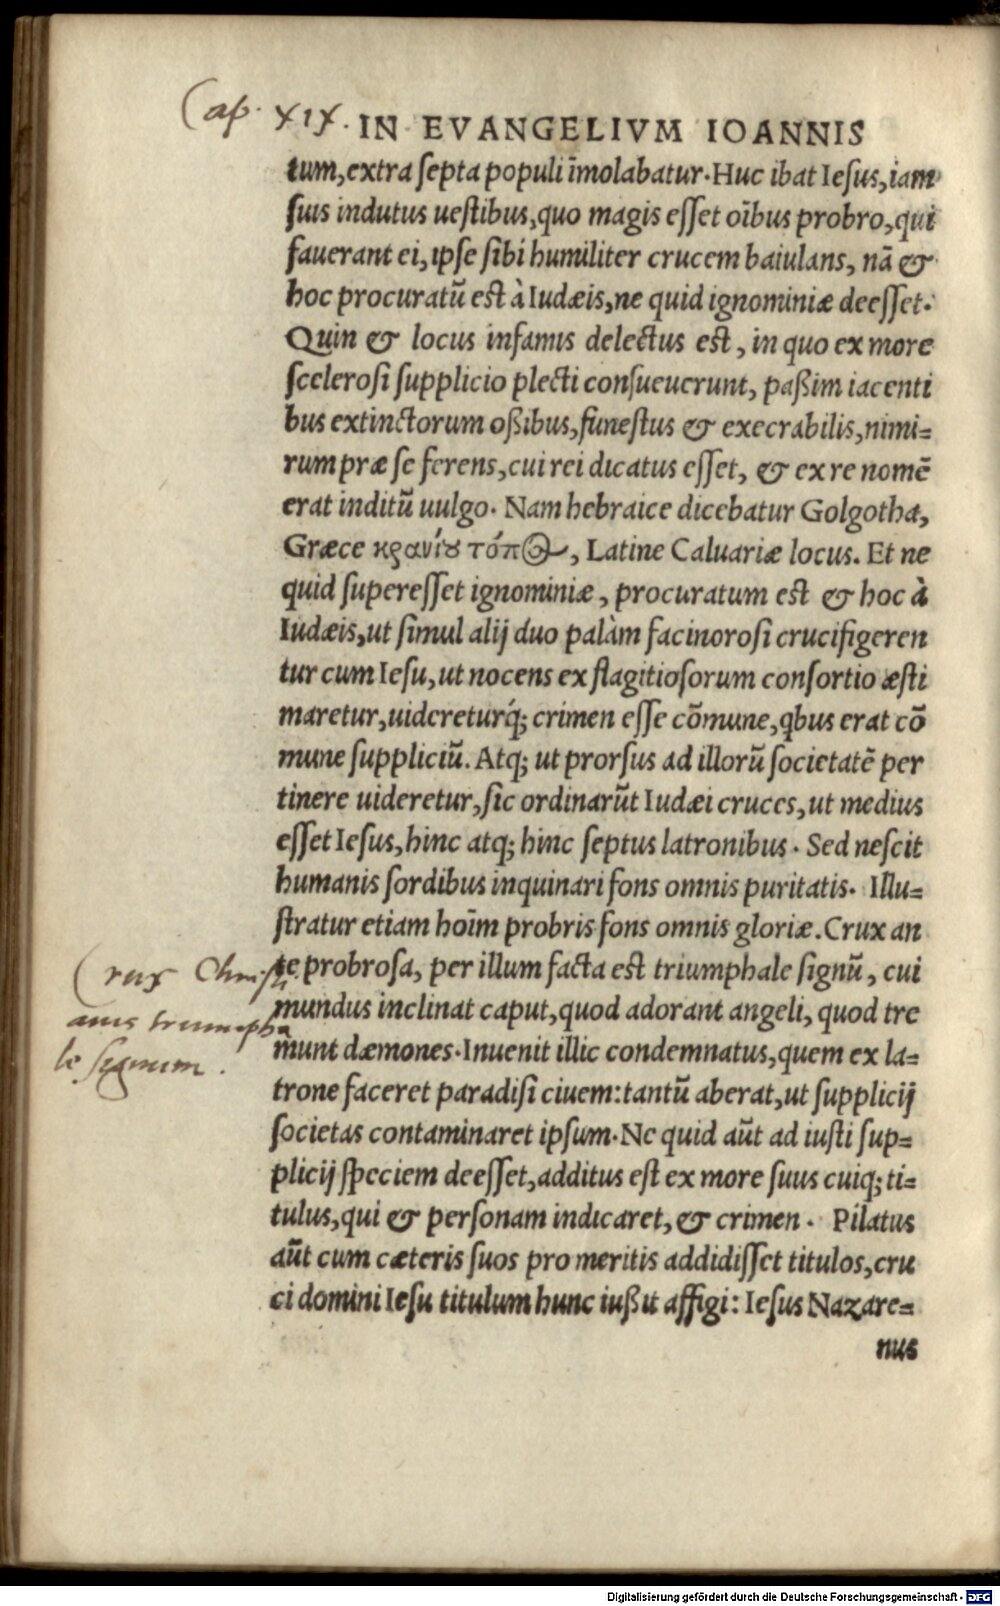 Cap. XIX. IN EVANGELIVM IOANNIS
tum, extra septa populi īmolabatur. Huc ibat Iesus, iam
suis indutus uestibus, quo magis esset oībus probro, qui
fauerant ei, ipse sibi humiliter crucem baiulans, nā &
hoc procuratū est à Iudæis, ne quid ignominiæ deesset.
Quin & locus infamis delectus est, in quo ex more
scelerosi supplicio plecti consueuerunt, paßim iacenti
bus extinctorum oßibus, funestus & execrabilis, nimi=
rum præ se ferens, cui rei dicatus esset, & ex re nomē
erat inditū uulgo. Nam hebraice dicebatur Golgotha,
Græce κρανίȣ τόπος, Latine Caluariæ locus. Et ne
quid superesset ignominiæ, procuratum est & hoc à
Iudæis, ut simul alij duo palàm facinorosi crucifigeren
tur cum Iesu, ut nocens ex flagitiosorum consortio æsti
maretur, uidereturq́; crimen esse cōmune, qbus erat cō
mune suppliciū. Atq; ut prorsus ad illorū societatē per
tinere uideretur, sic ordinarūt Iudæi cruces, ut medius
esset Iesus, hinc atq; hinc septus latronibus. Sed nescit
humanis sordibus inquinari fons omnis puritatis. Illu=
stratur etiam hoīm probris fons omnis gloriæ. Crux an
te probrosa, per illum facta est triumphale signū, cui
mundus inclinat caput, quod adorant angeli, quod tre
munt dæmones. Inuenit illic condemnatus, quem ex la=
trone faceret paradisi ciuem: tantū aberat, ut supplicij
societas contaminaret ipsum. Ne quid aūt ad iusti sup=
plicij speciem deesset, additus est ex more suus cuiq; ti=
tulus, qui & personam indicaret, & crimen. Pilatus
aūt cum cæteris suos pro meritis addidisset titulos, cru
ci domini Iesu titulum hunc iußit affigi: Iesus Nazare=
nus
Crux Christi
anis triumpha
le signum.
Digitalisierung gefördert durch die Deutsche Forschungsgemeinschaft - DFG